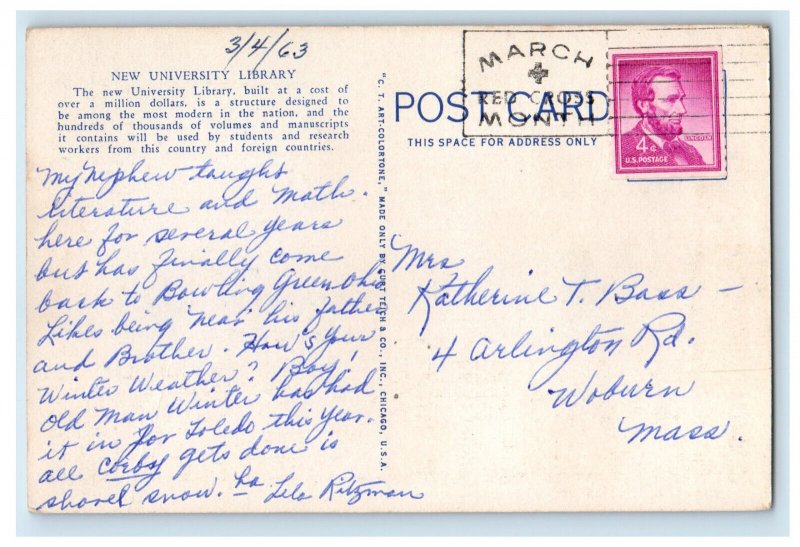 3/4/63
NEW UNIVERSITY LIBRARY
The new University Library, built at a cost of
over a million dollars, is a structure designed to
be among the most modern in the nation, and the
hundreds of thousands of volumes and manuscripts
it contains will be used by students and research
workers from this country and foreign countries.
My Nephew taught
literature and Math.
here for several years
but has finally come
back to Bowling Green Ohio
Likes being near his father
and Brother. How's your
Winter Weather? Boy!
Old Man Winter has had
it in for Toledo this year.
all Corby gets done is
shovel snow. Ha Lela Ritzman
"C. T. ART-COLORTONE," MADE ONLY BY CURT TEICH & CO., INC., CHICAGO, U.S.A.
MARCH
RED CROSS
MONTH
POST CARD
THIS SPACE FOR ADDRESS ONLY
LINCOLN
4¢
U.S. POSTAGE
Mrs
Katherine T. Bass –
4 Arlington Rd.
Woburn
Mass.